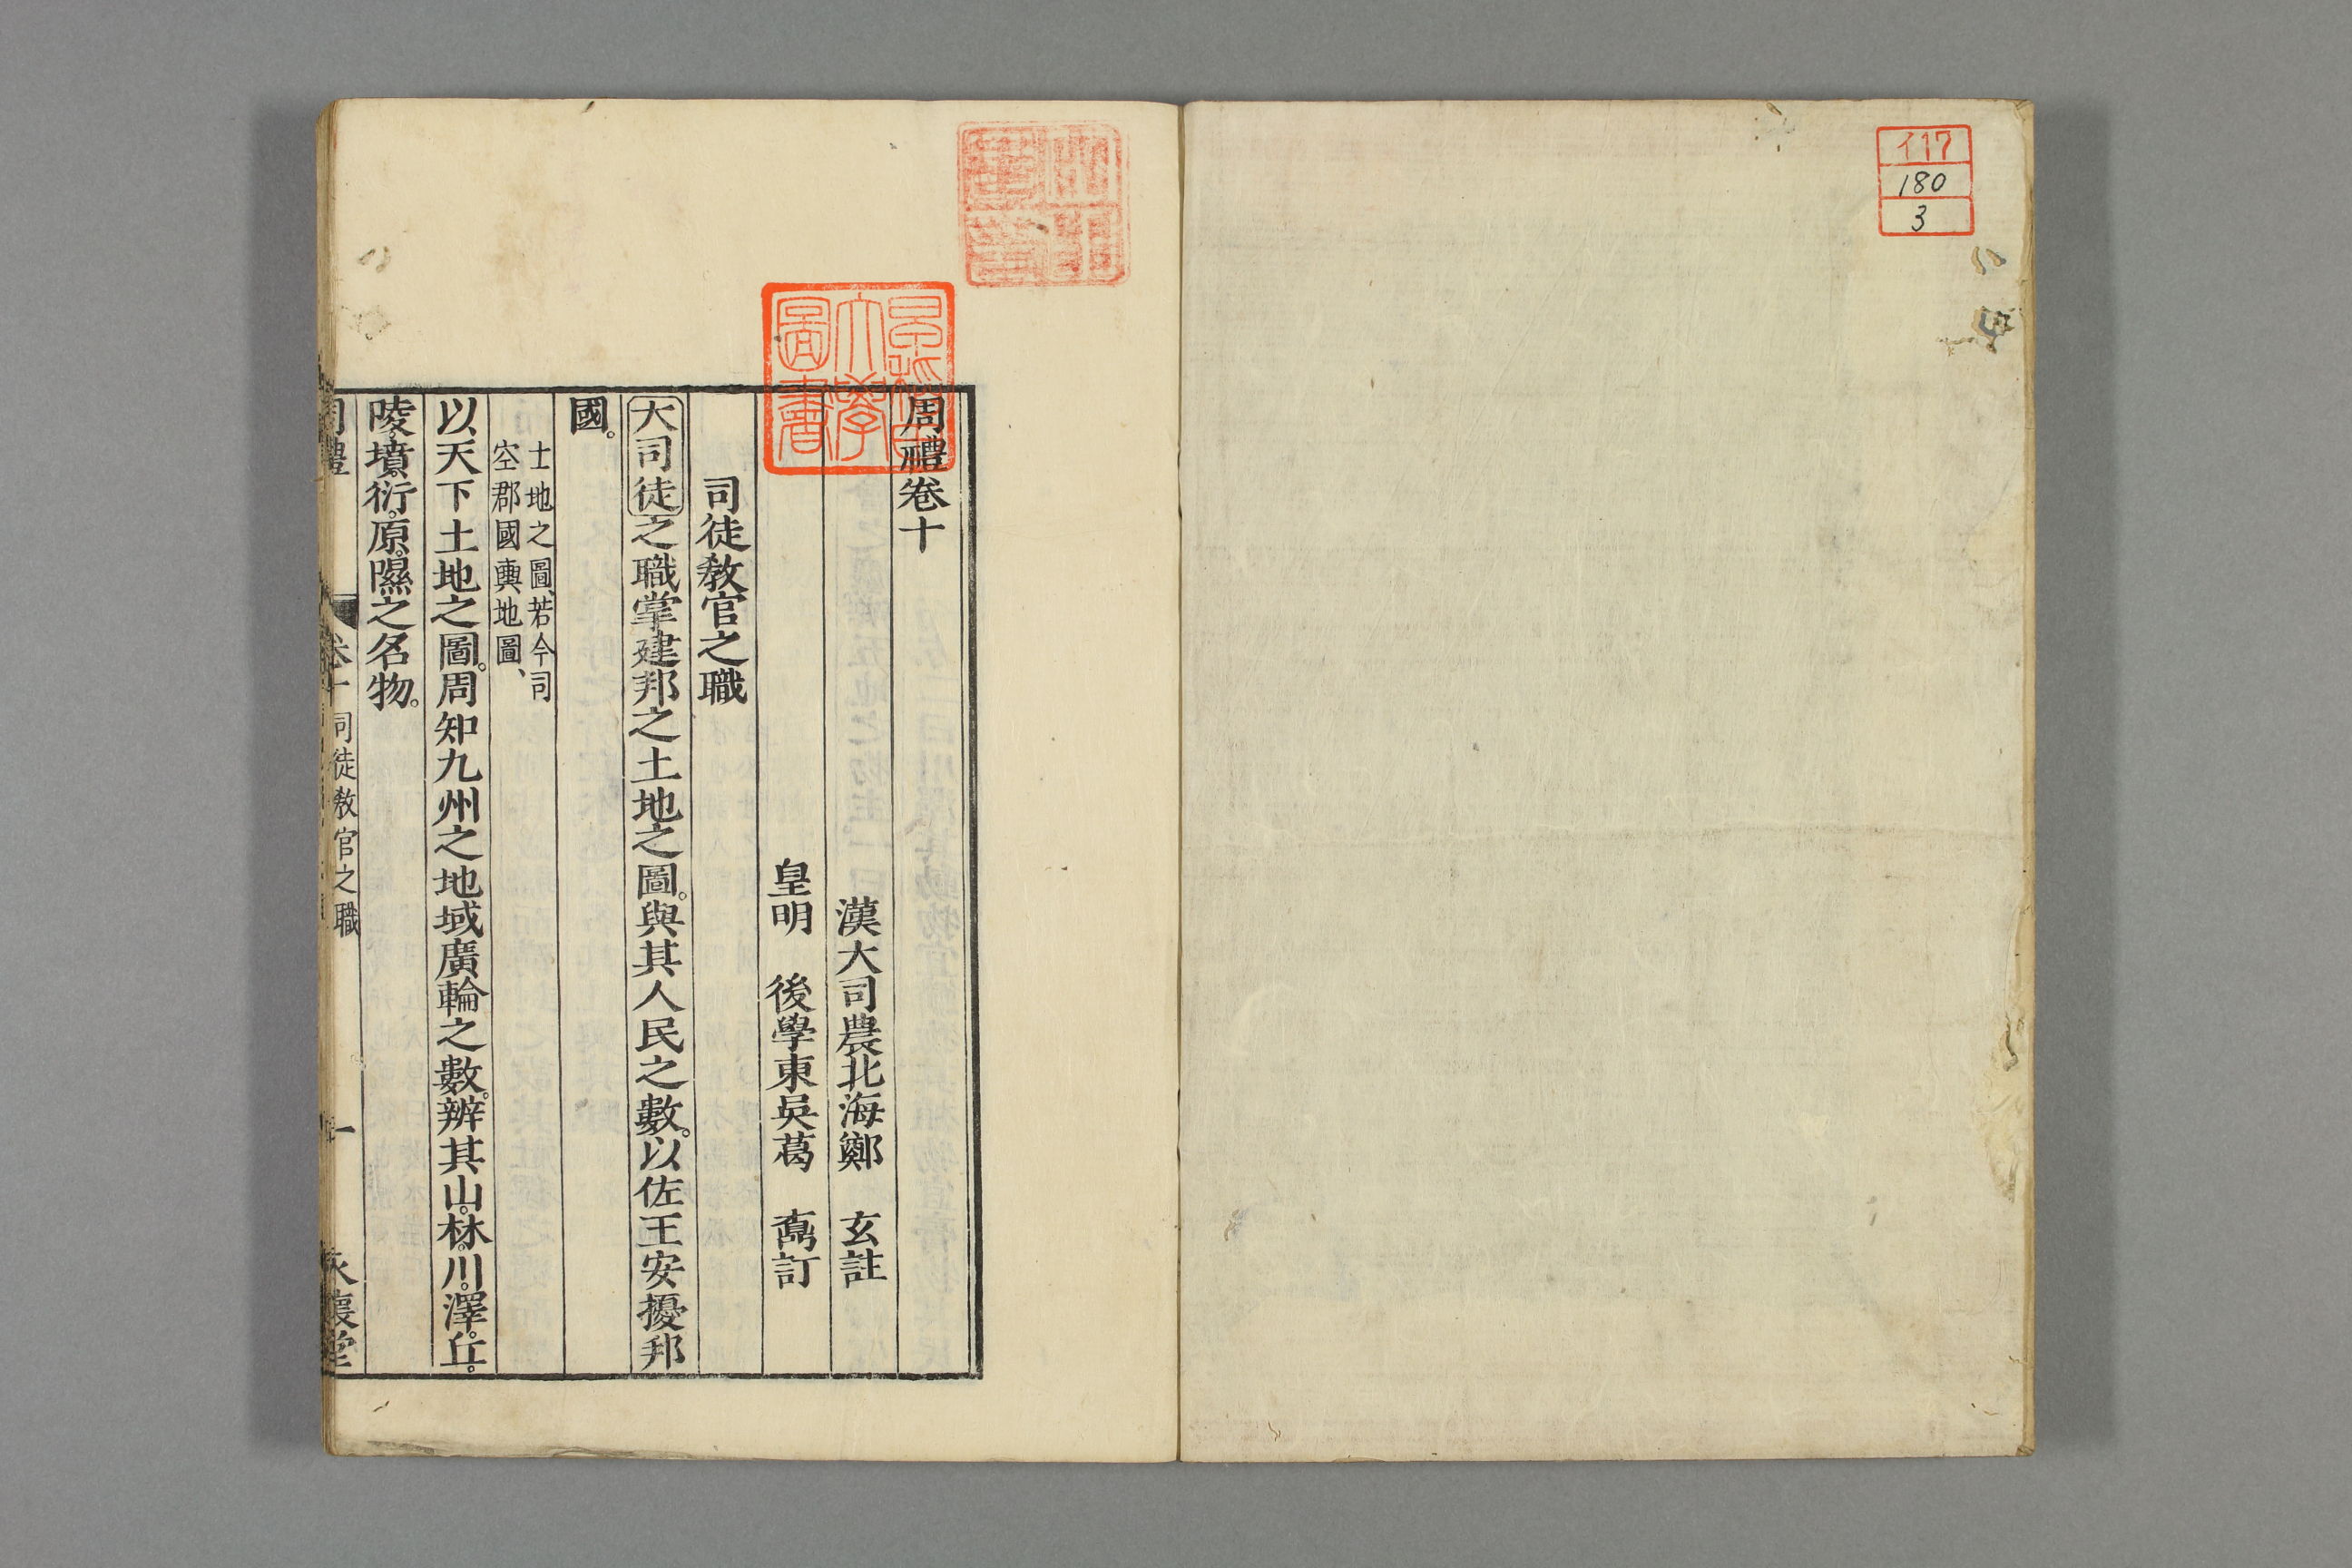 イ17
180
3
早稻田大學圖書
周禮卷十
漢大司農北海鄭　玄註
皇明　後學東吳葛　鼒訂
司徒敎官之職
大司徒之職掌建邦之土地之圖。與其人民之數。以佐王安擾邦
國。
土地之圖、若今司
空郡國輿地圖、
以天下土地之圖。周知九州之地域廣輪之數。辨其山。林。川。澤。丘。
陵。墳。衍。原。隰之名物。
周禮　卷十　司徒敎官之職　一　永懷堂